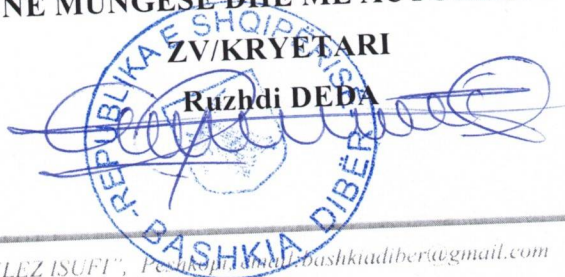 NË MUNGESË DHE ME
ZV/KRYETARI
Ruzhdi DEDA
REPUBLIKA E SHQIPËRISË
BASHKIA DIBËR
ELEZ ISUFI", Peshkopi, email:bashkiadiber@gmail.com